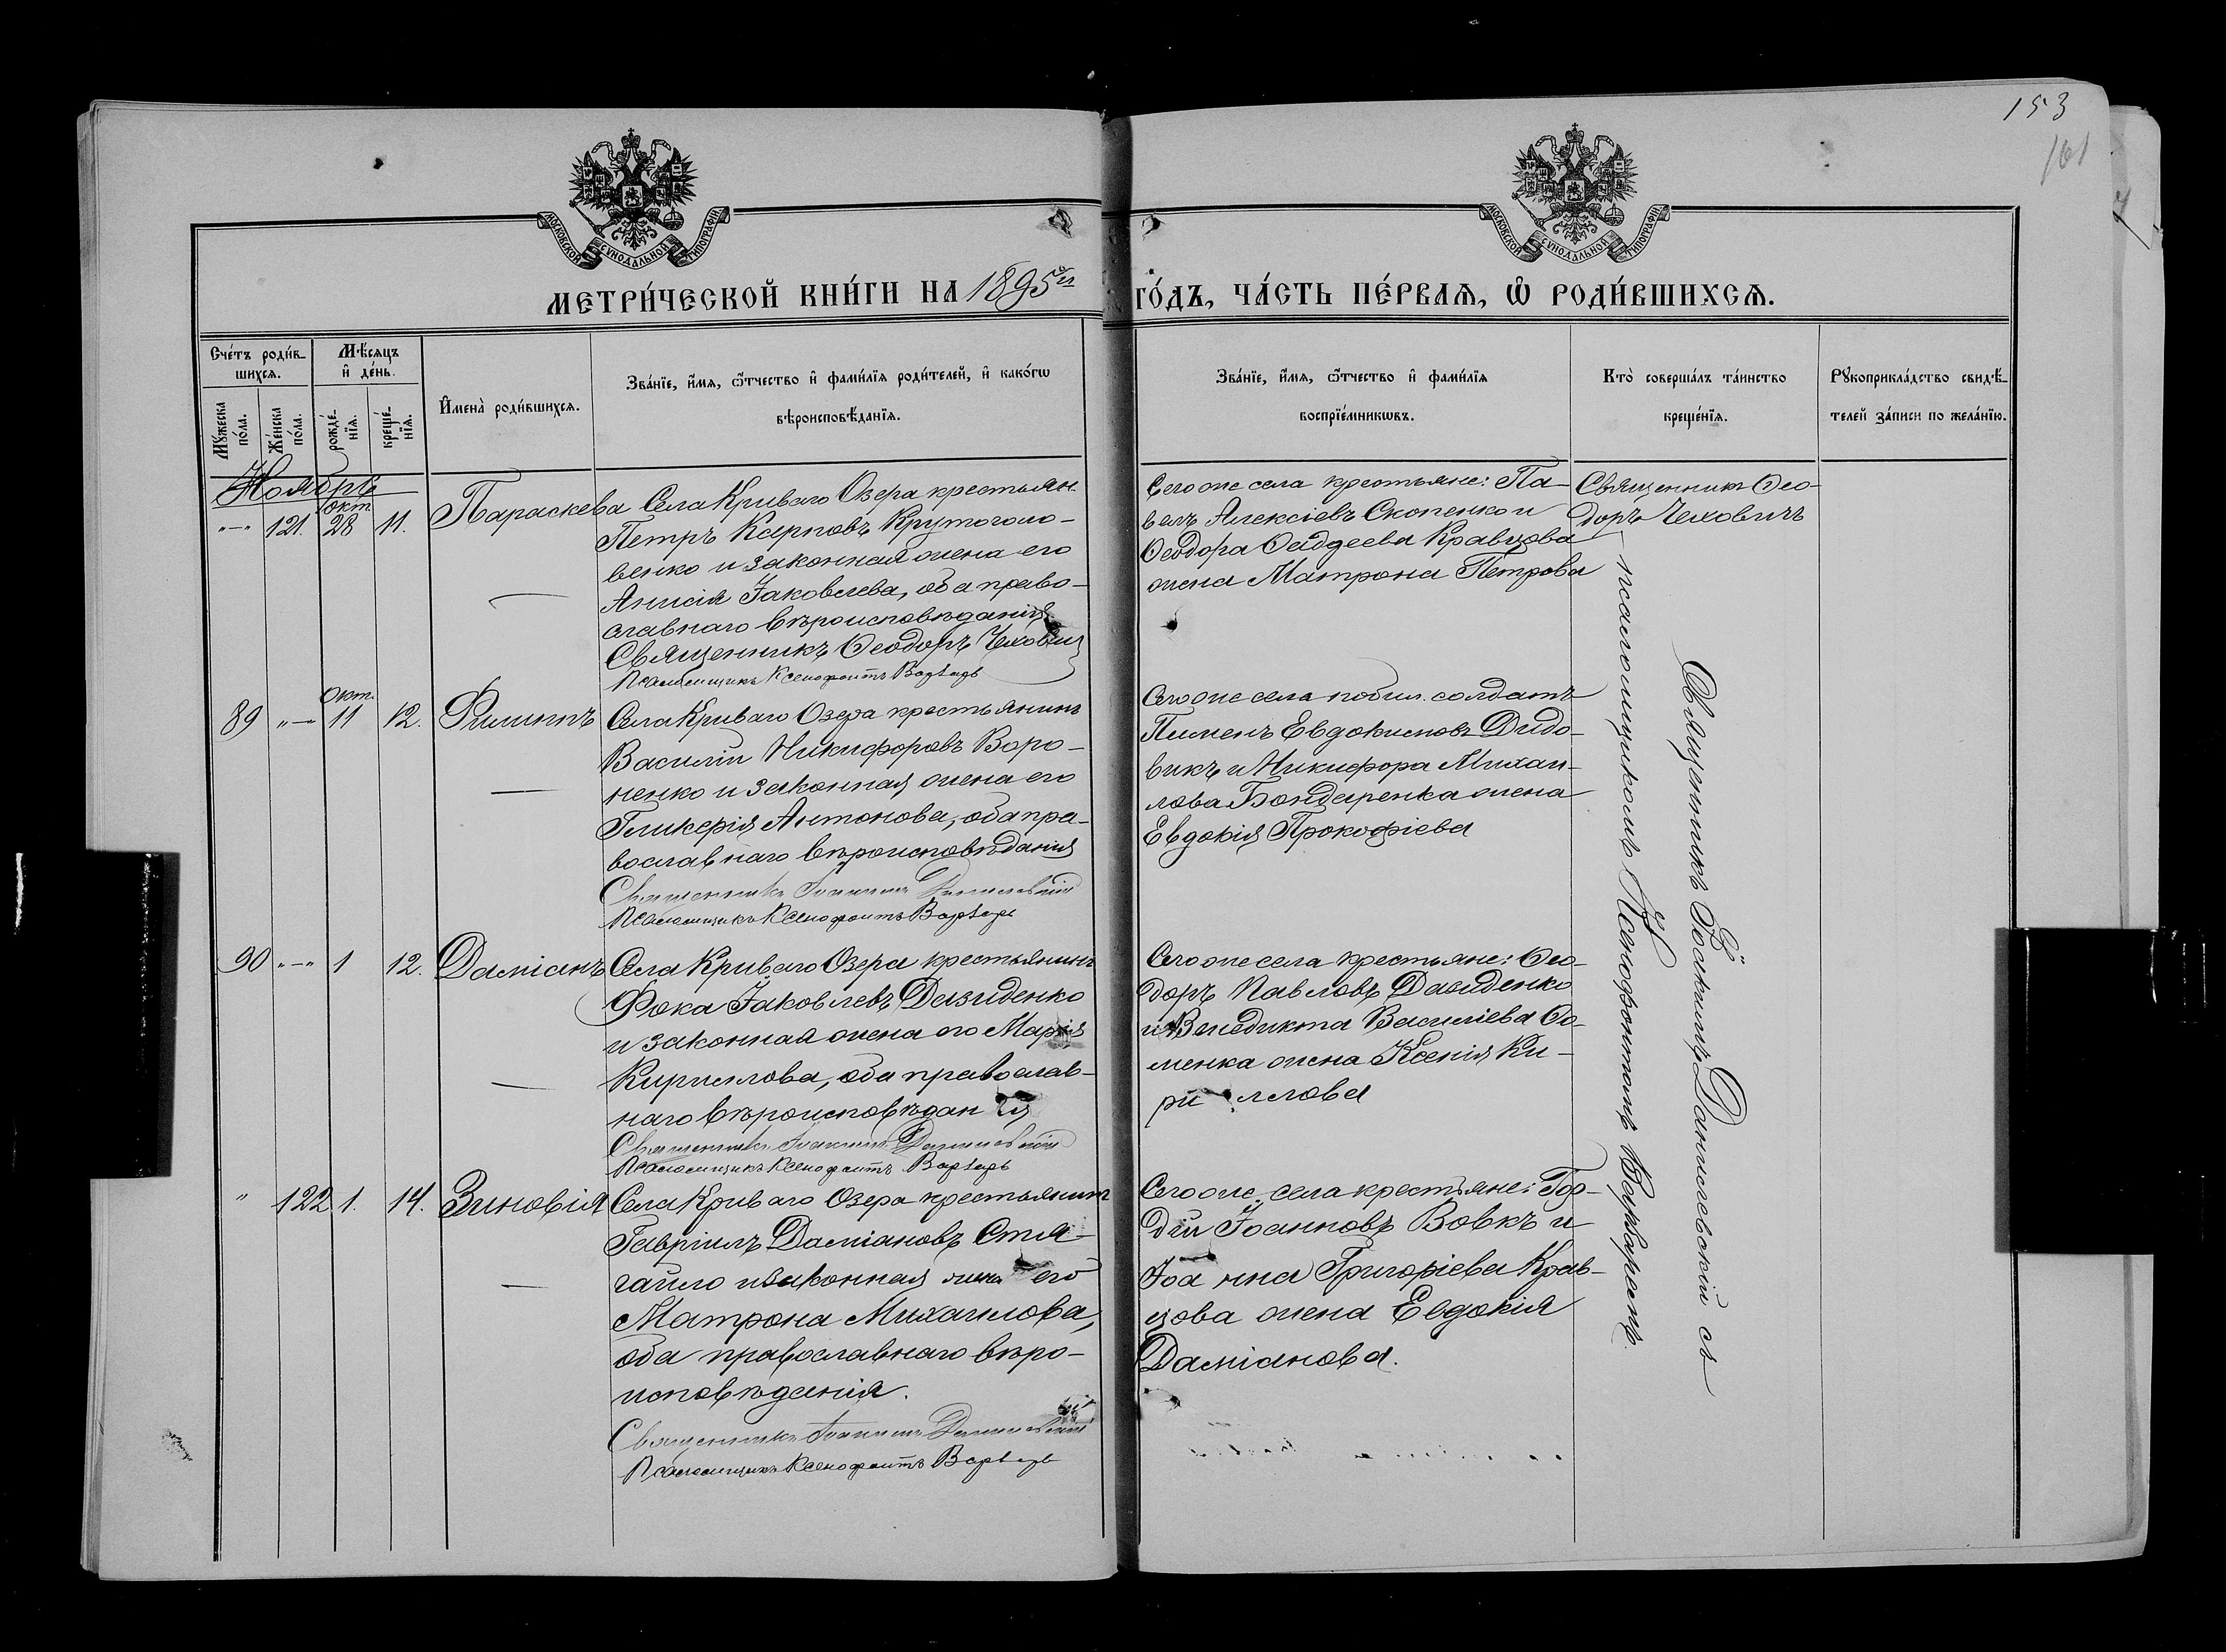 153
161
МОСКОВСКОЙ СѴНОДАЛЬНОЙ ТИПОГРАФІИ.
МОСКОВСКОЙ СѴНОДАЛЬНОЙ ТИПОГРАФІИ.
МЕТРИ́ЧЕСКОЙ КНИ́ГИ НА 1895й ГО́ДЪ, ЧА́СТЬ ПЕ́РВАѦ, Ѽ РОДИ́ВШИХСѦ.
Сче́тъ роди́в-
шихсѧ.
Мѣ́сѧцъ
и҆ де́нь.
Мꙋ́жеска
по́ла.
Же́нска
по́ла.
рожде́-
нїѧ.
креще́-
нїѧ.
И҆мена̀ роди́вшихсѧ.
Зва́нїе, и҆́мѧ, ѻ҆́тчество и҆ фами́лїѧ роди́телей, и҆ како́гѡ
вѣроисповѣ́данїѧ.
Зва́нїе, и҆́мѧ, ѻ҆́тчество и҆ фами́лїѧ
воспрїе́мникѡвъ.
Кто̀ соверша́лъ та́инство
креще́нїѧ.
Рꙋкоприкла́дство свидѣ́-
телей за́писи по жела́нїю.
Ноябрь
"—" 121. Окт 28 11. Параскева
Села Криваго Озера крестьян.
Петръ Карповъ Крутоголо-
венко и законная жена его
Анисія Іаковлева, оба право-
славнаго вѣроисповѣданія
Священникъ Ѳеодоръ Чехович
Псаломщикъ Ксенофонтъ Варваръ
Сегоже села крестьяне: Па-
велъ Алексіевъ Скопенко и
Ѳеодора Ѳаддеева Кравцова
жена Матрона Петрова
Священникъ Ѳео-
доръ Чеховичъ
89 "— Окт. 11 12. Филиппъ
Села Криваго Озера крестьянинъ
Василій Никифоровъ Воро-
ненко и законная жена его
Гликерія Антонова, оба пра-
вославнаго вѣроисповѣданія
Священникъ Іоакимъ Данилевскій
Псаломщикъ Ксенофонтъ Варваръ
Сегоже села солдатъ
Пименъ Евдокимовъ Дидо-
викъ и Никифора Михаи-
лова Бондаренка жена
Евдокія Прокофіева
90 "—" 1 12. Даміанъ
Села Криваго Озера крестьянинъ
Фока Іаковлевъ Давиденко
и законная жена его Марія
Кириллова, оба православ-
наго вѣроисповѣданія
Священникъ Іоакимъ Данилевскій
Псаломщикъ Ксенофонтъ Варваръ
Сегоже села крестьяне: Ѳео-
доръ Павловъ Давиденко
и Венедикта Василіева Ѳо-
менка жена Ксенія Ки-
риллова
" 122 1. 14. Зиновія
Села Криваго Озера крестьянинъ
Гавріилъ Даміановъ Стя-
гайло и законная жена его
Матрона Михаилова,
оба православнаго вѣро-
исповѣданія.
Священникъ Іоакимъ Данилевскій
Псаломщикъ Ксенофонтъ Варваръ
Сегоже села крестьяне: Гор-
дій Іоанновъ Вовкъ и
Іоанна Григоріева Крав-
цова жена Евдокія
Даміанова.
Священникъ Іоакимъ Данилевскій съ
псаломщикомъ Ксенофонтомъ Варваремъ.